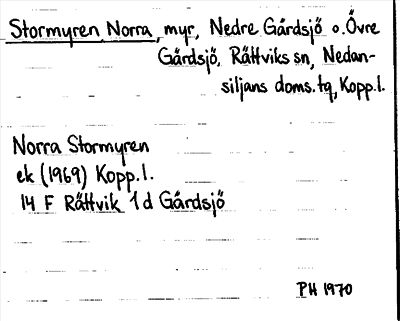 Stormyren, Norra, myr, Nedre Gårdsjö o. Övre
Gårdsjö, Rättviks sn, Nedan-
siljans doms. tg, Kopp. l.
Norra Stormyren
ek (1969) Kopp. l.
14 F Rättvik 1 d Gårdsjö
PH 1970